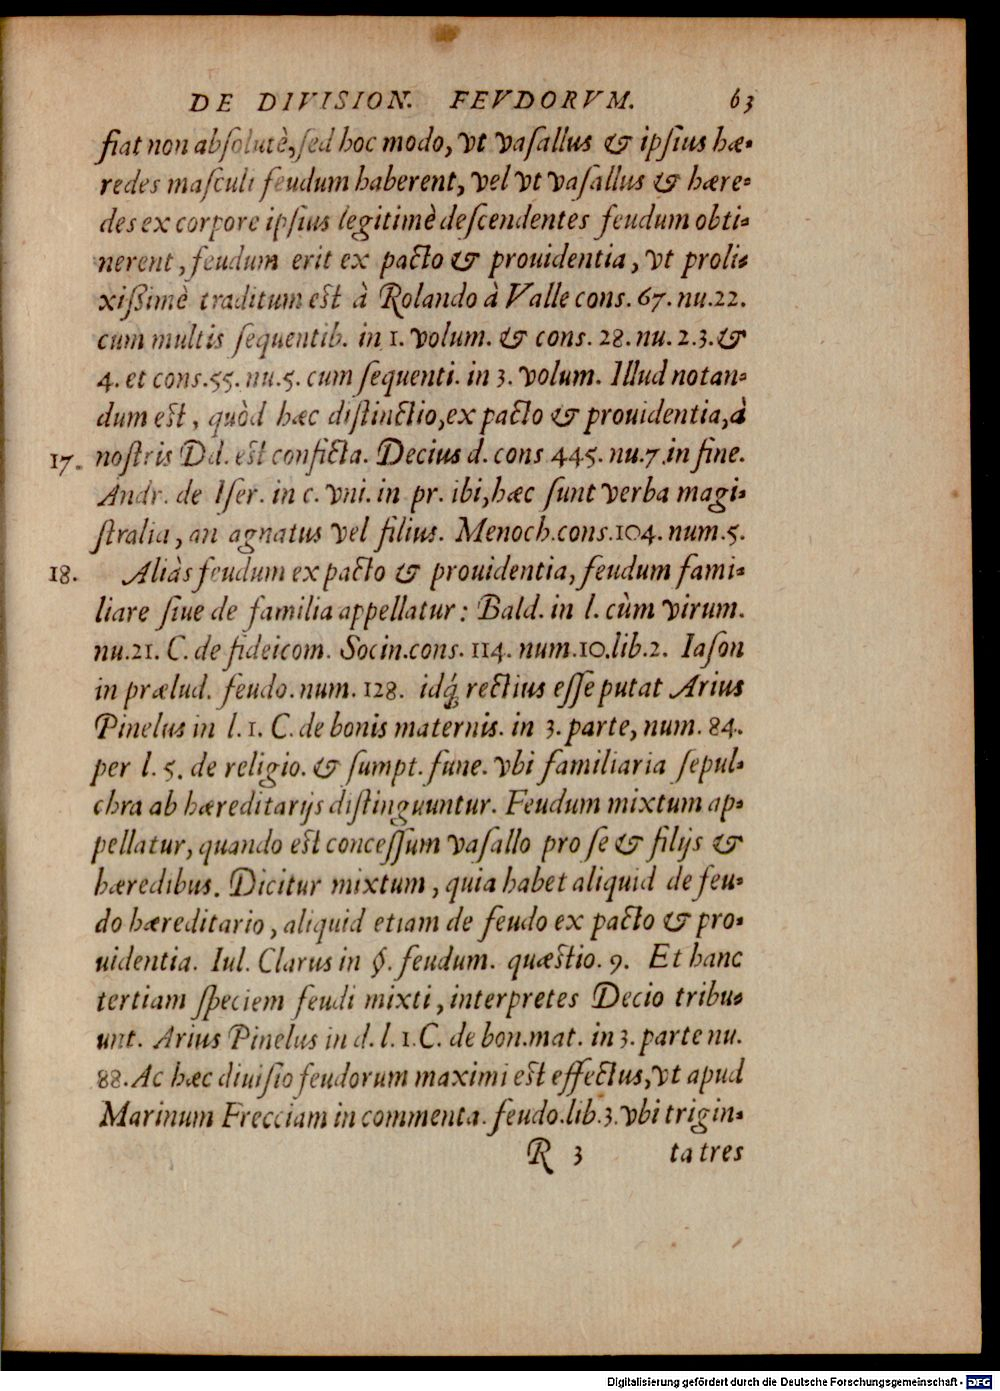 DE DIVISION. FEVDORVM. 63
fiat non absolutè, sed hoc modo, vt vasallus & ipsius hæ-
redes masculi feudum haberent, vel vt vasallus & hære-
des ex corpore ipsius legitimè descendentes feudum obti-
nerent, feudum erit ex pacto & prouidentia, vt proli-
xißimè traditum est à Rolando à Valle cons. 67. nu.22.
cum multis sequentib. in 1. volum. & cons. 28. nu. 2.3. &
4. et cons.55. nu.5. cum sequenti. in 3. volum. Illud notan-
dum est, quòd hæc distinctio, ex pacto & prouidentia, à
17. nostris Dd. est conficta. Decius d. cons 445. nu.7. in fine.
Andr. de Iser. in c. vni. in pr. ibi, hæc sunt verba magi-
stralia, an agnatus vel filius. Menoch.cons.104. num.5.
18. Aliàs feudum ex pacto & prouidentia, feudum fami-
liare siue de familia appellatur: Bald. in l. cùm virum.
nu.21. C. de fideicom. Socin.cons. 114. num.10.lib.2. Iason
in prælud. feudo. num. 128. idq́ rectius esse putat Arius
Pinelus in l. 1. C. de bonis maternis. in 3. parte, num. 84.
per l. 5. de religio. & sumpt. fune. vbi familiaria sepul-
chra ab hæreditarijs distinguuntur. Feudum mixtum ap-
pellatur, quando est concessum vasallo pro se & filijs &
hæredibus. Dicitur mixtum, quia habet aliquid de feu-
do hæreditario, aliquid etiam de feudo ex pacto & pro-
uidentia. Iul. Clarus in §. feudum. quæstio. 9. Et hanc
tertiam speciem feudi mixti, interpretes Decio tribu-
unt. Arius Pinelus in d. l. 1. C. de bon.mat. in 3. parte nu.
88. Ac hæc diuisio feudorum maximi est effectus, vt apud
Marinum Frecciam in commenta. feudo.lib.3. vbi trigin-
R 3 ta tres
Digitalisierung gefördert durch die Deutsche Forschungsgemeinschaft - DFG